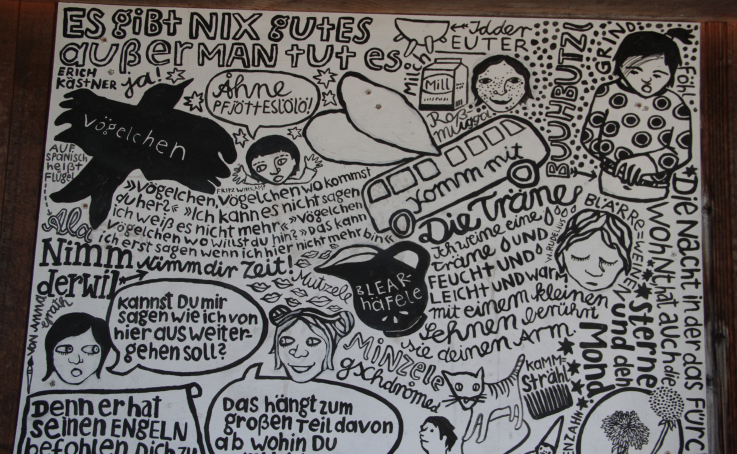 ES GIBT NIX GUTES
außer MAN tut es.
ERICH
KÄSTNER
ja!
Vögelchen
AUF
SPANISCH
heißt
FLÜGEL
Åhne
PFJÖTTESLÖLÖ!
Milch
Milch
Idder
EUTER
BUCHBUTZI
GRIND
Föhl
komm mit
»Vögelchen, Vögelchen wo kommst
du her?« »Ich kann es nicht sagen
ich weiß es nicht mehr« »Vögelchen
Vögelchen wo willst du hin?« »Das kann
ich erst sagen wenn ich hier nicht mehr bin«
Nimm
derwil
nimm dir Zeit!
Die Träne
Ich weine eine
träne UND
FEUCHT UND
LEICHT UND WARM
mit einem kleinen
Sehnen berührt
sie deinen Arm.
BLÄRRE=WEINEN
Die Nacht in der das FÜRC
WOHNT hat auch die
Sterne
und den
Mond
BLEAR-
häfele
Mutzele
MINZELE
gschdrömes
kannst Du mir
sagen wie ich von
hier aus weiter-
gehen soll?
KAMM=
Strähl
Denn er hat
seinen ENGELN
befohlen Dich zu
Das hängt zum
großen Teil davon
ab wohin Du